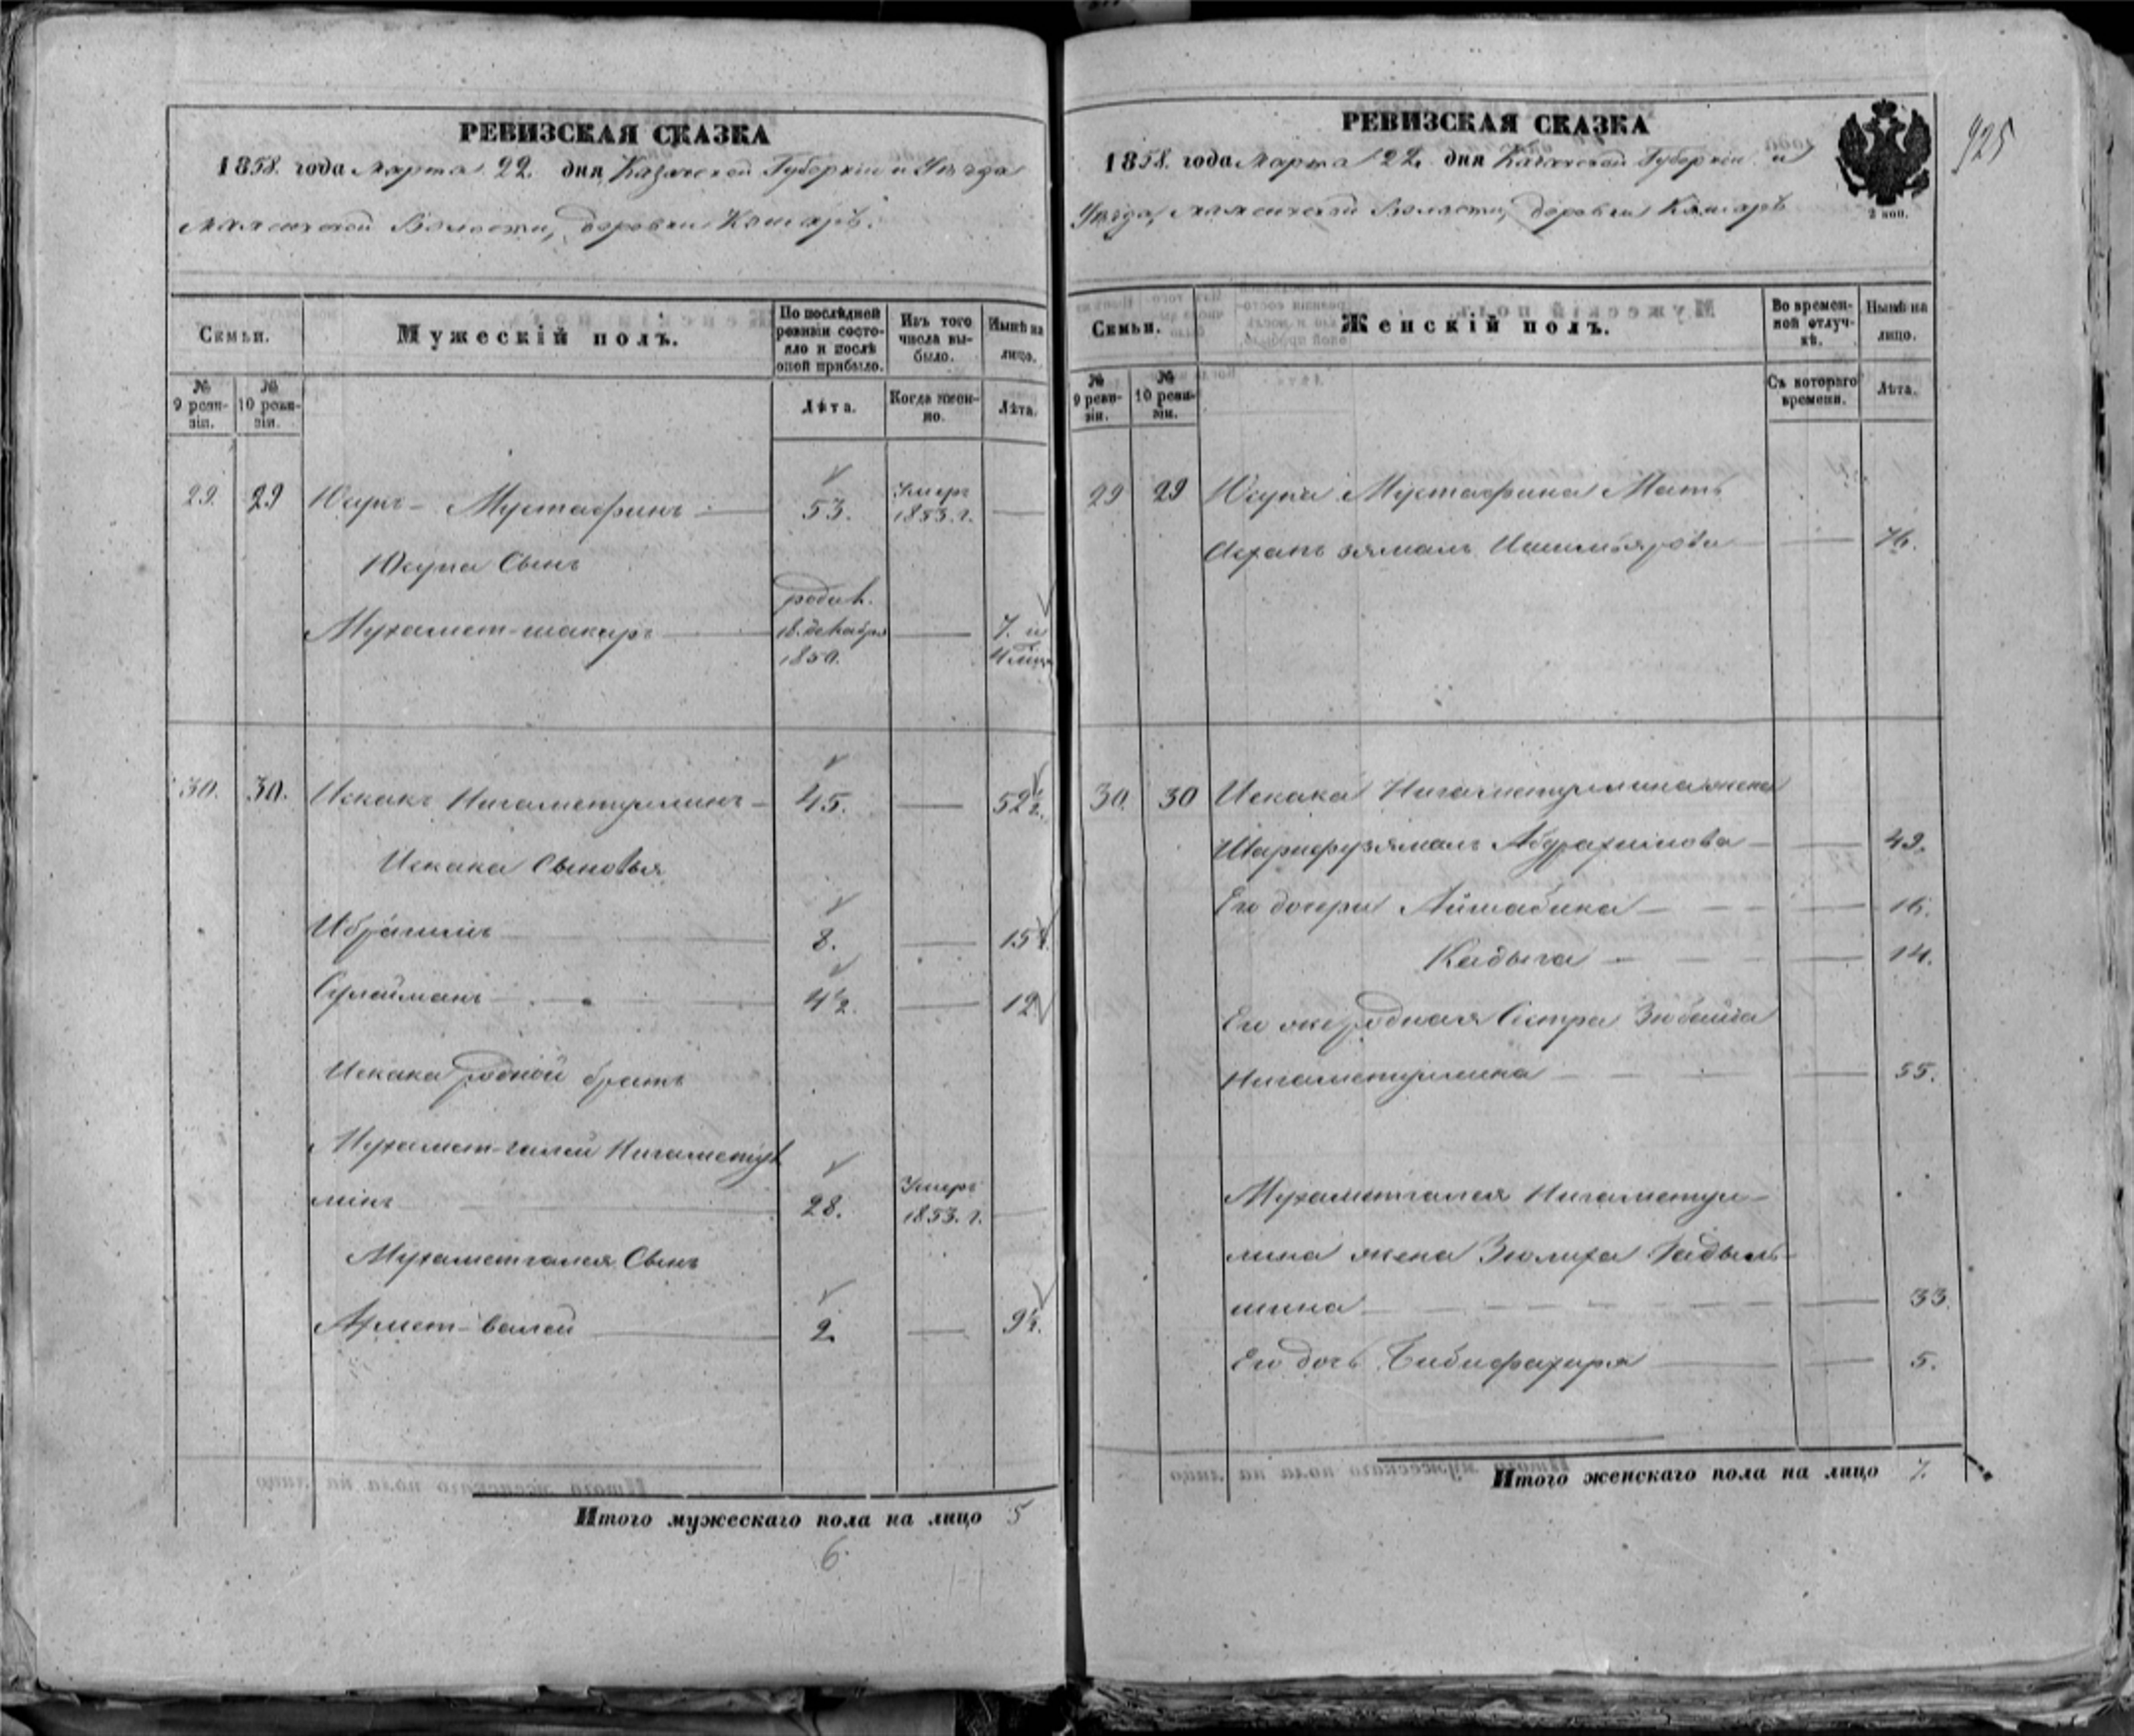 РЕВИЗСКАЯ СКАЗКА
1858. года Марта 22. дня Казанской Губерніи и Уѣзда
Волости, деревни
Семьи.
Мужескій полъ.
По послѣдней ревизіи состояло и послѣ оной прибыло.
Изъ того числа выбыло.
Нынѣ на лицо.
№ 9 ревизіи.
№ 10 ревизіи.
Лѣта.
Когда именно.
Лѣта.
29. 29 Юсупъ Мустафинъ 53. Умеръ 1853. г.
Юсупа Сынъ
Мухамет-шакиръ родил. 18. декабря 1850. 7. и 4 мѣс.
30. 30. Искакъ Нигаметуллинъ 45. 52½.
Искака Сыновья
Ибрагимъ 8. 15½.
Сулейманъ 4½. 12
Искака родной братъ
Мухамет-галей Нигаметул
линъ 28. Умеръ 1853. г.
Мухаметгалея Сынъ
Ахмет-валей 2 9½.
Итого мужескаго пола на лицо 5
6.
РЕВИЗСКАЯ СКАЗКА
925
1858. года Марта 22. дня Казанской Губерніи и
Уѣзда, Волости, деревни
2 коп.
Семьи.
Женскій полъ.
Во временной отлучкѣ.
Нынѣ на лицо.
№ 9 ревизіи.
№ 10 ревизіи.
Съ котораго времени.
Лѣта.
29 29 Юсупа Мустафина Мать
76.
30. 30 Искака Нигаметуллина жена
Шарифузямалъ Абдрахимова 49.
Его дочери Айшабика 16.
Кадыга 14.
Его же родная Сестра Зюбайда
Нигаметуллина 55.
Мухаметгалея Нигаметул-
лина жена Зюлиха Гадыль-
шина 33.
Его дочь Бибифахиря 5.
Итого женскаго пола на лицо 7.